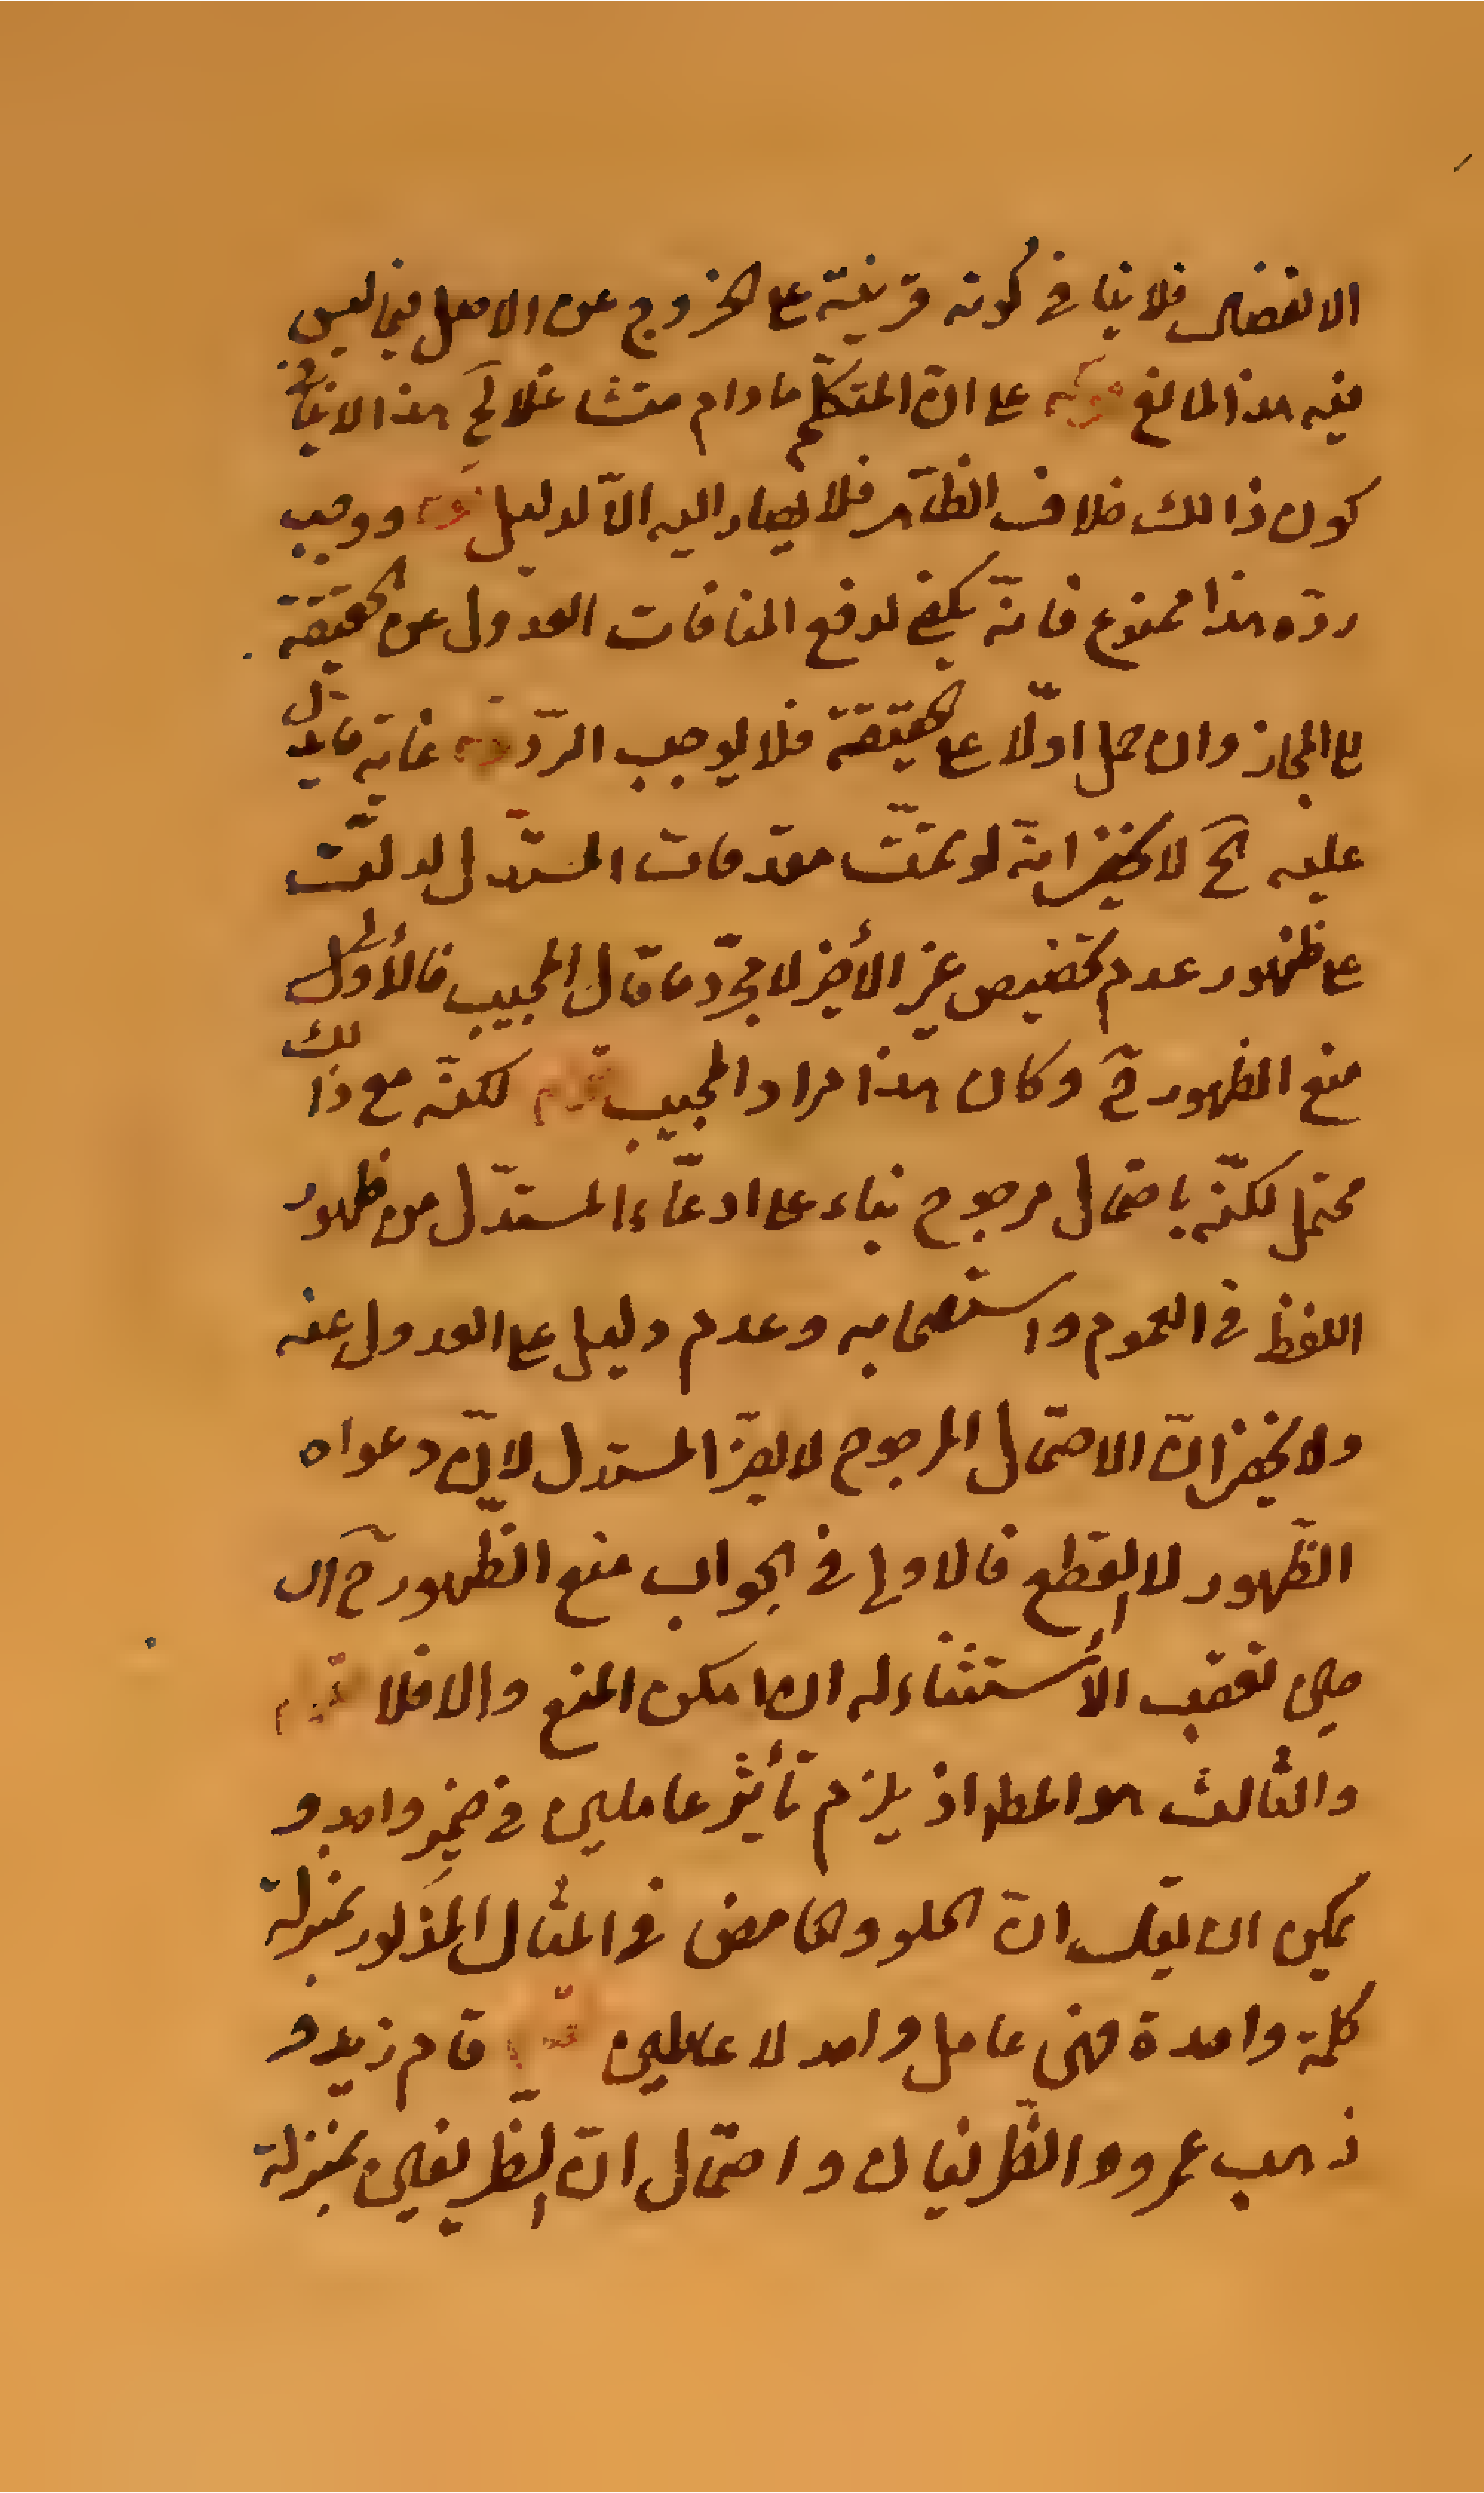 الانفصال فلا ينافى كونه قرينة ع الخروج عن الاصل فيما ليس
فيه هذا المانع قوله ع ان المتكلم ما دام متشاغلا لخ هذا لا ينافى
كون ذالك خلاف الظاهر فلا يصار اليه الا لدليل قوله ووجب
رده هذا ممنوع فانه يكفى لدفع المنافات العدول عن الحقيقة
ع المجاز وان حمل اولا ع الحقيقة فلا يوجب الرد قوله غاية ما يدل
عليه لخ لا يخفى انه لو تمت مقدمات المستدل لدلت
ع ظهور عدم تخصيص غير الأخير لا مجرد ما قال المجيب فالأولى
منع الظهور ح وكان هذا مراد المجيب قوله لكنه مع ذالك
محتمل لكنه باحتمال مرجوح بناء ع ادعاء المستدل من ظهور
اللفظ فى العموم واستصحابه وعدم دليل ع العدول عنه
ولا يخفى ان الاحتمال المرجوح لا يضر المستدل لان دعواه
الظهور لا القطع فالاولى فى الجواب منع الظهور ح ال
حين تعقب الأستثناء له ان امكن المنع والا فلا قوله
والثالث هو المط اذ يلزم تأثير عاملين فى ضمير واحد و
يمكن ان يقال ان الحلو والحامض فى المثال المذكور بمنزلة
كلمة واحدة فهى عامل واحد لا عاملين قوله قام زيد و
ذهب عمرو والظريفان واحتمال ان الظريفين بمنزلة